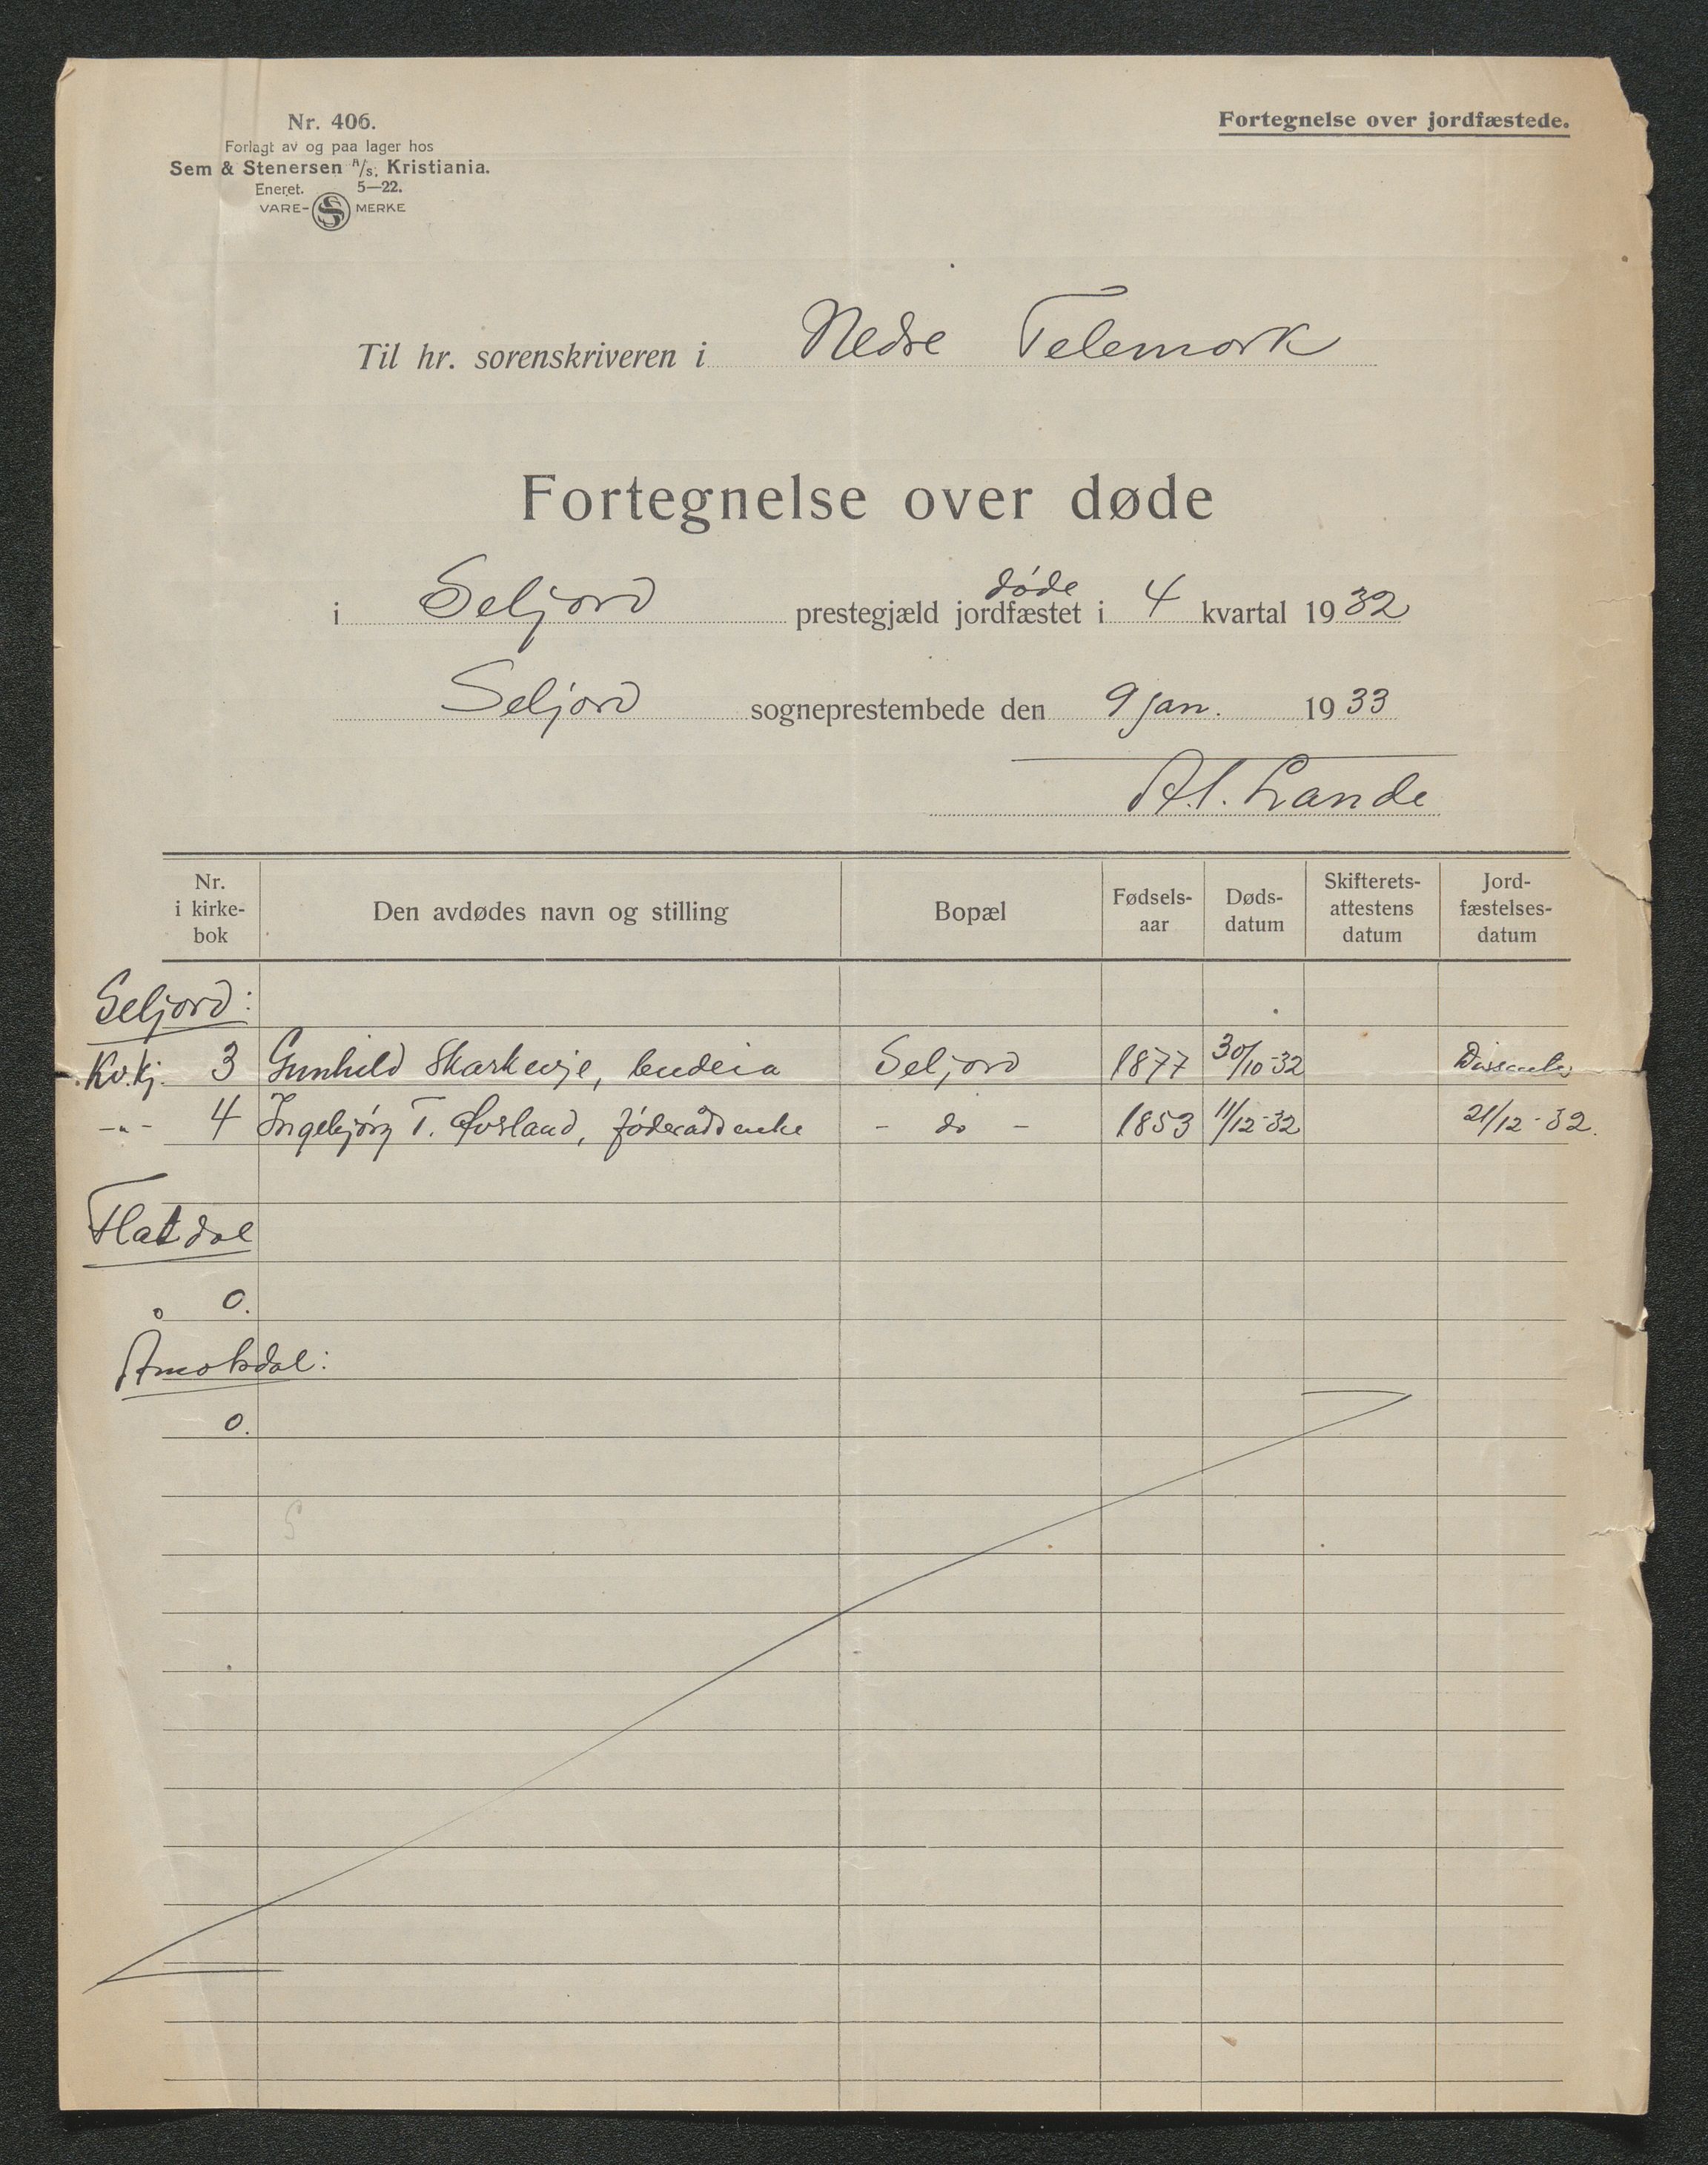 Nr. 406.
Fortegnelse over jordfæstede.
Forlagt av og paa lager hos
Sem & Stenersen A/S, Kristiania.
Eneret. 5—22.
VARE- S MERKE
Til hr. sorenskriveren i Nedre Telemark
Fortegnelse over døde
døde
i Seljord prestegjæld jordfæstet i 4 kvartal 1932
Seljord sogneprestembede den 9 jan. 1933
Lande
Nr. i kirke-bok Den avdødes navn og stilling Bopæl Fødsels-aar Døds-datum Skifterets-attestens datum Jord-fæstelses-datum
Seljord:
Kv.kj. 3 Gunhild budeia Seljord 1877 30/10-32 Dissenter
-"- 4 Ingebjørg T. - do - 1853 11/12-32 21/12-32.
Flatdal
0.
Åmotsdal:
0.